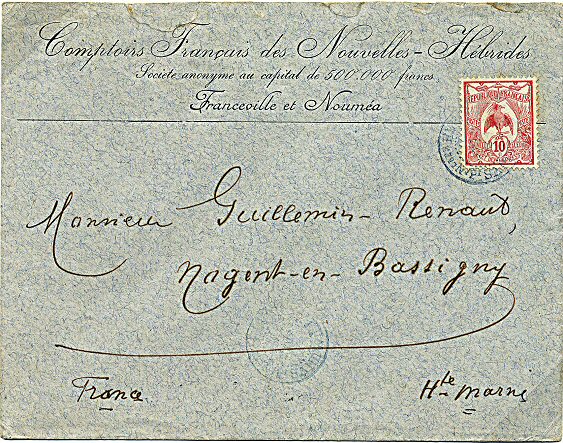 Comptoirs Français des Nouvelles-Hébrides
Société anonyme au capital de 500.000 francs.
Franceville et Nouméa
REPUBLIQUE FRANÇAISE
10
Monsieur Guillemin-Renaut,
Nogent-en-Bassigny
France
Hte Marne